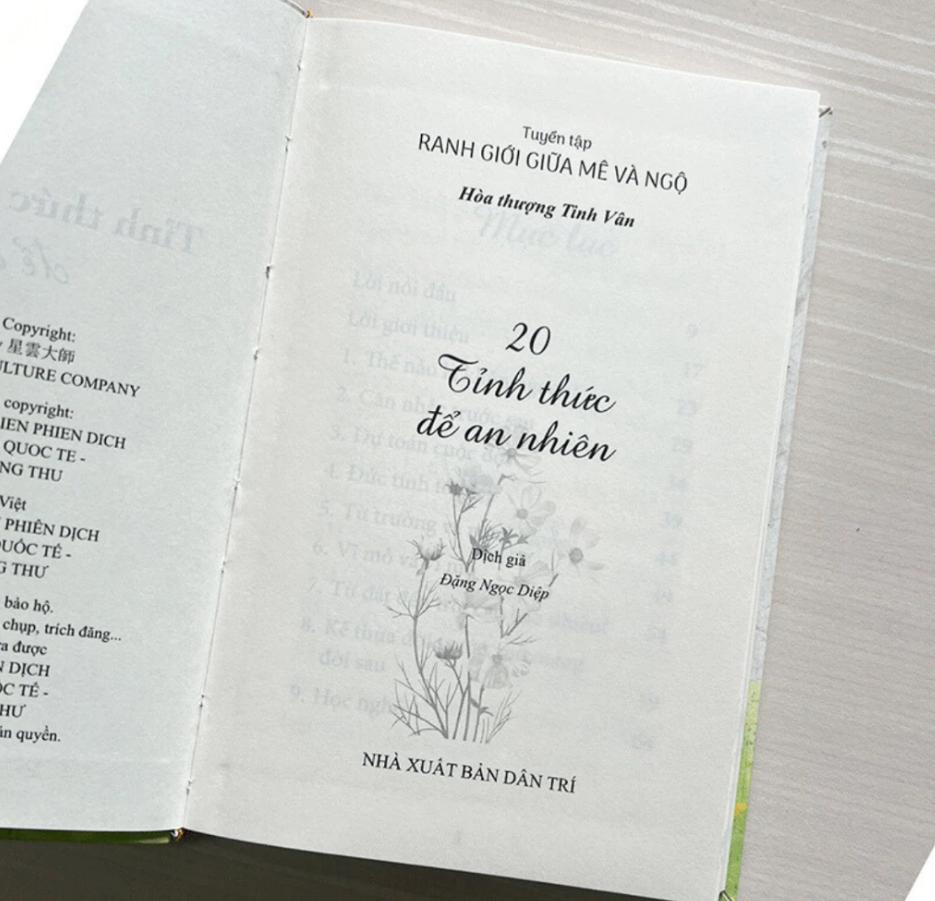 Copyright:
星雲大師
ULTURE COMPANY
copyright:
IEN PHIEN DICH
QUOC TE -
NG THU
Việt
PHIÊN DỊCH
QUỐC TẾ -
G THƯ
bảo hộ.
chụp, trích đăng...
được
DỊCH
TẾ -
HƯ
quyền.
Tuyển tập
RANH GIỚI GIỮA MÊ VÀ NGỘ
Hòa thượng Tinh Vân
20
Tỉnh thức
để an nhiên
Dịch giả
Đặng Ngọc Diệp
NHÀ XUẤT BẢN DÂN TRÍ